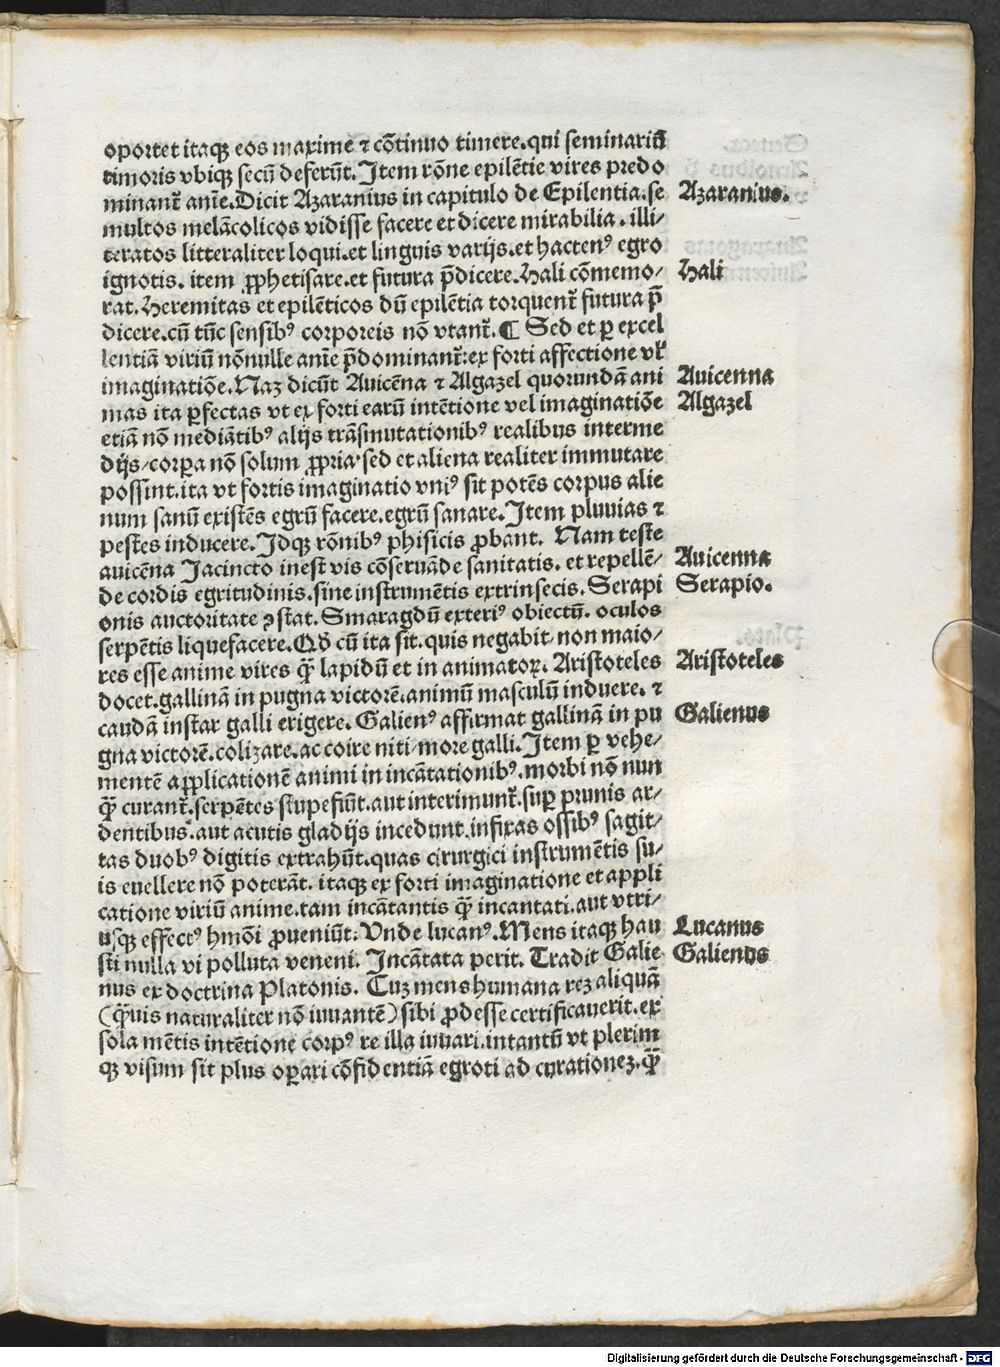 oportet itaqꝫ eos maxime ⁊ cōtinuo timere.qui seminariū
timoris vbiqꝫ secū deferūt. Item rōne epilētie vires predo
minant᷑ anīe.Dicit Azaranius in capitulo de Epilentia.se
Azaranius.
multos melācolicos vidisse facere et dicere mirabilia. illi⸗
teratos litteraliter loqui.et linguis varijs.et hactenꝰ egro
ignotis. item ꝓphetisare.et futura p̄dicere.Hali cōmemo⸗
Hali
rat.Heremitas et epilēticos dū epilētia torquent᷑ futura p̄
dicere.cū tūc sensibꝰ corporeis nō vtant᷑.¶ Sed et ꝑ excel
lentiā viriū nōnulle anīe p̄dominant᷑:ex forti affectione vl̓
imaginatiōe.Naꝫ dicūt Auicēna ⁊ Algazel quorundā ani
Auicenna
mas ita ꝑfectas vt ex forti earū intētione vel imaginatiōe
Algazel
etiā nō mediātibꝰ alijs trāsmutationibꝰ realibus interme
dijs/corꝑa nō solum ꝓpria·sed et aliena realiter immutare
possint.ita vt fortis imaginatio vniꝰ sit potēs corpus alie
num sanū existēs egrū facere.egrū sanare.Item pluuias ⁊
pestes inducere.Idqꝫ rōnibꝰ phisicis ꝓbant. Nam teste
auicēna Jacincto inest vis cōseruāde sanitatis. et repellē⸗
Auicenna
de cordis egritudinis.sine instrumētis extrinsecis. Serapi
Serapio.
onis auctoritate ꝯstat. Smaragdū exteriꝰ obiectū. oculos
serpētis liquefacere.Qd̄ cū ita sit.quis negabit.non maio⸗
res esse anime vires qͣ̄ lapidū et in animatoꝝ. Aristoteles
Aristoteles
docet.gallinā in pugna victorē.animū masculū induere. ⁊
caudā instar galli erigere. Galienꝰ affirmat gallinā in pu
Galienus
gna victorē.colizare.ac coire niti/more galli.Item ꝑ vehe⸗
mentē aꝓplicationē animi in incātationibꝰ.morbi nō nun
qͣ̄ curant᷑.serpētes stupefiūt.aut interimunt᷑.suꝑ prunis ar⸗
dentibus.aut acutis gladijs incedunt.infixas ossibꝰ sagit⸗
tas duobꝰ digitis extrahūt.quas cirurgici instrumētis su⸗
is euellere nō poterāt. itaqꝫ ex forti imaginatione et appli
catione viriū anime.tam incātantis qͣ̄ incantati.aut vtri⸗
usqꝫ effectꝰ hmōi ꝓueniūt. Vnde lucanꝰ.Mens itaqꝫ hau
Lucanus
sti nulla vi polluta veneni. Incātata perit. Tradit Galie⸗
Galienus
nus ex doctrina Platonis. Cuꝫ mens humana reꝫ aliquā
(qͣ̄uis naturaliter nō iuuantē) sibi ꝓdesse certificauerit.ex
sola mētis intētione corpꝰ re illa iuuari.intantū vt plerim
qꝫ visum sit plus oꝑari cōfidentiā egroti ad curationeꝫ.qͣ̄